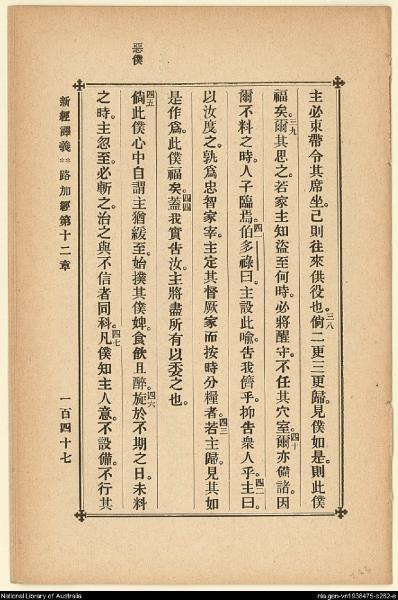 惡僕
主必束帶令其席坐。己則往來供役也。三八倘二更三更歸。見僕如是。則此僕
福矣。三九爾其思之。若家主知盜至何時。必將醒守。不任其穴室。四十爾亦備諸。因
爾不料之時。人子臨焉。四一伯多祿曰。主設此喻。告我儕乎。抑告衆人乎。四二主曰。
以汝度之。孰爲忠智家宰。主定其督厥家。而按時分糧者。四三若主歸。見其如
是作爲。此僕福矣。四四蓋我實告汝。主將盡所有以委之也。
四五倘此僕心中自謂主猶緩至。始撲其僕婢。食飮且醉。四六旋於不期之日。未料
之時。主忽至。必斬之。治之與不信者同科。四七凡僕知主人意。不設備。不行其
新經譯義**路加經第十二章 一百四十七
National Library of Australia
nla.gen-vn1938475-s282-e